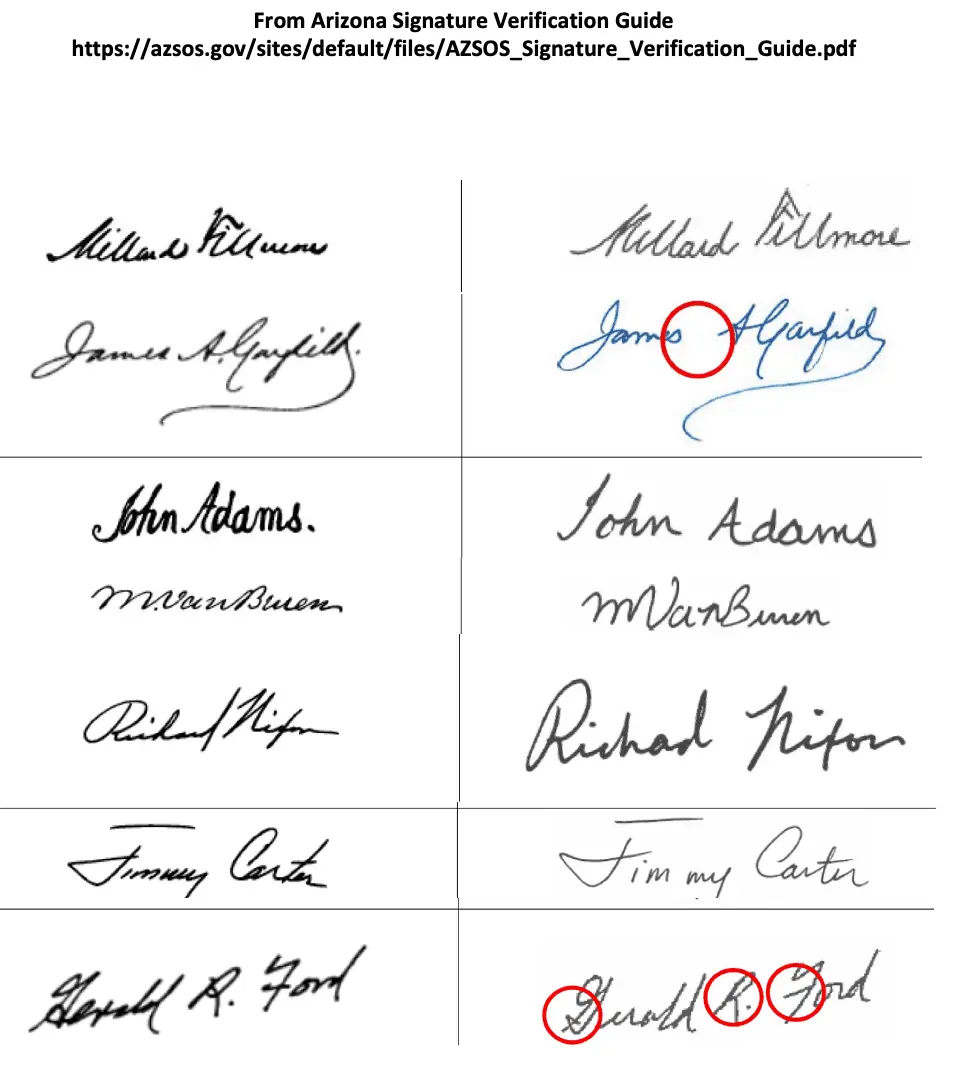 From Arizona Signature Verification Guide
https://azsos.gov/sites/default/files/AZSOS_Signature_Verification_Guide.pdf
Millard Fillmore Millard Fillmore
James A. Garfield. James A Garfield
John Adams. John Adams
M. Van Buren M Van Buren
Richard Nixon Richad Nixon
Jimmy Carter Jimmy Carter
Gerald R. Ford Gerald R. Ford